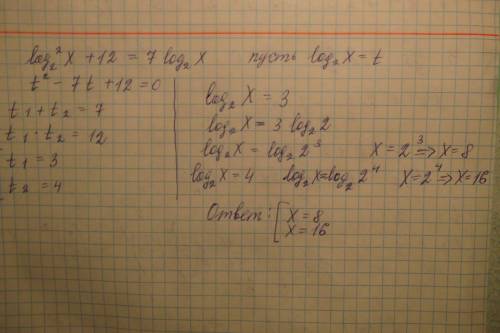 log₂² x + 12 = 7 log₂ x    пусть log₂ x = t
t² - 7t + 12 = 0
t₁ + t₂ = 7
t₁ · t₂ = 12
t₁ = 3
t₂ = 4
log₂ x = 3
log₂ x = 3 log₂ 2
log₂ x = log₂ 2³    x = 2³ => x = 8
log₂ x = 4    log₂ x = log₂ 2⁴    x = 2⁴ => x = 16
Ответ: [ x = 8
x = 16